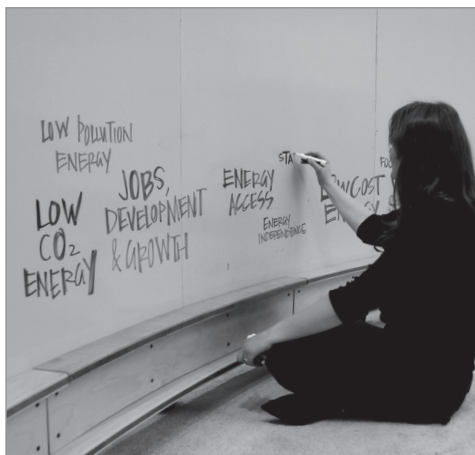 LOW POLLUTION
ENERGY
LOW
CO2
ENERGY
JOBS,
DEVELOPMENT
& GROWTH
ENERGY
ACCESS
ENERGY
INDEPENDENCE
STA
LOW COST